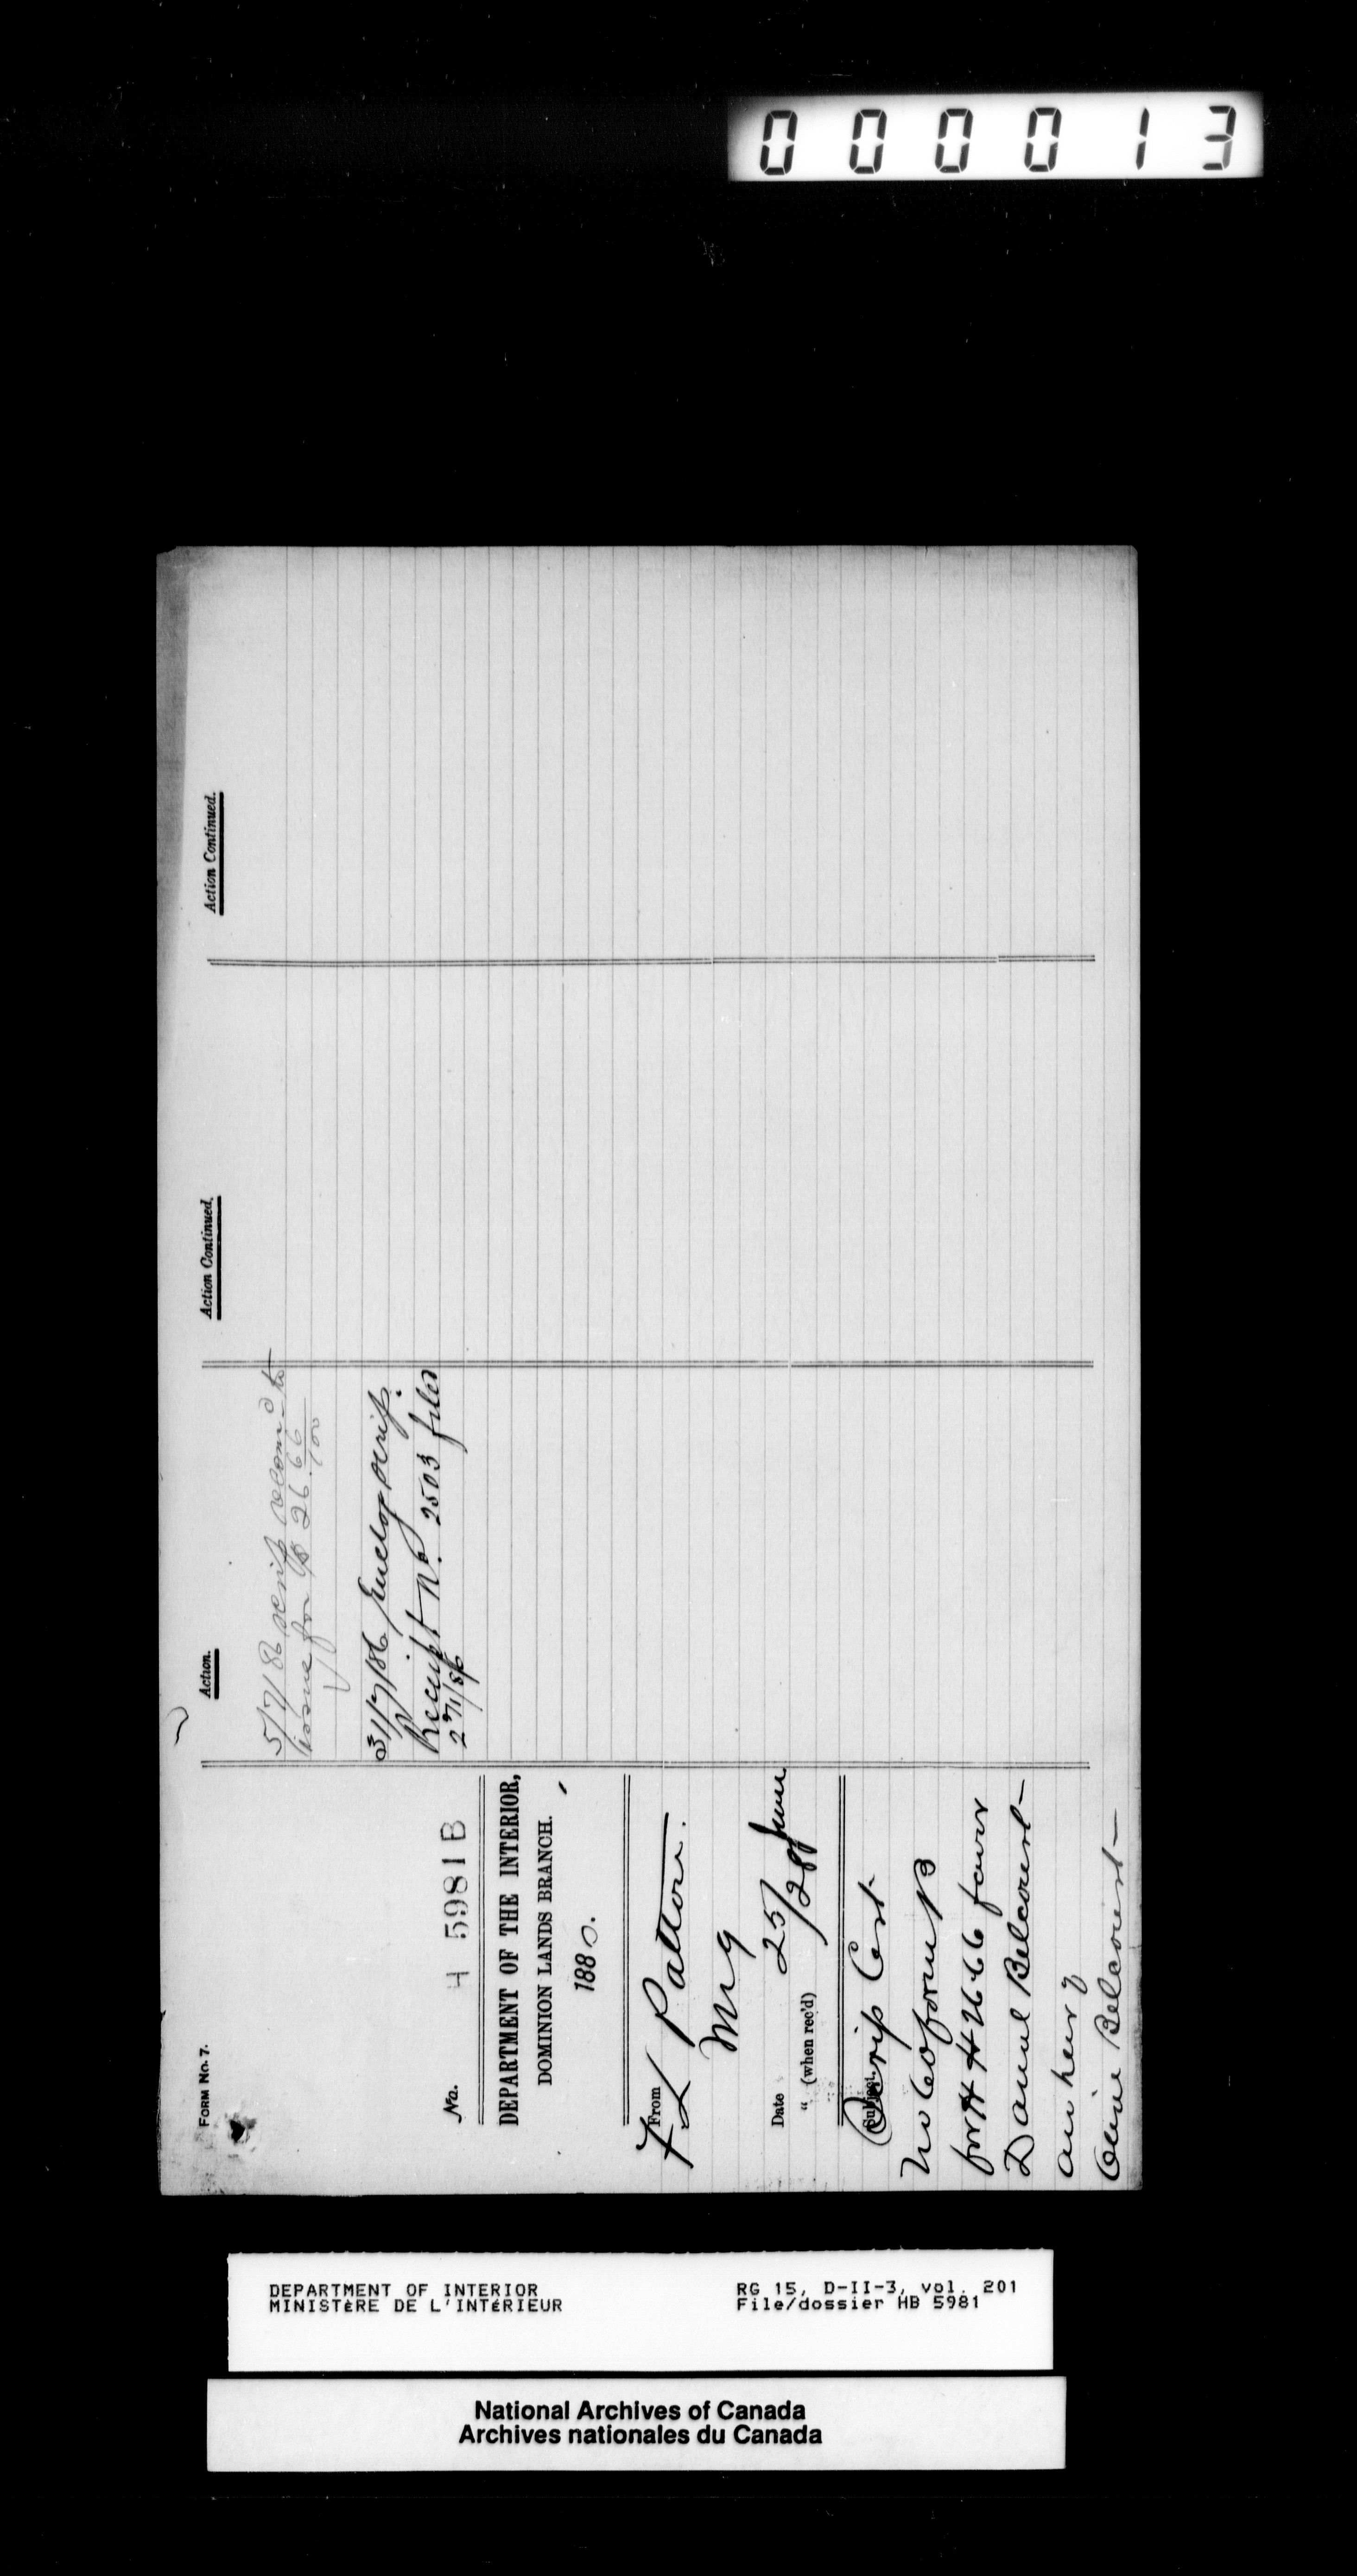 000013
FORM No. 7.
No.
H 5981 B
DEPARTMENT OF THE INTERIOR,
DOMINION LANDS BRANCH.
188
From
F L Patton.
Date 25/ June
" (when rec'd) 28
Subject.
Scrip Cert
No 60 form B
for H H 2666 favr
Daniel Belcourt
an heir of
Olive Belcourt
Action.
5/7/86 scrip recom-d to
issue for $ 26.66/100
31/7/86 Enclog scrip.
Receipt No. 2503 filed
Action Continued.
Action Continued.
DEPARTMENT OF INTERIOR
MINISTÈRE DE L'INTÉRIEUR
RG 15, D-II-3, vol. 201
File/dossier HB 5981
National Archives of Canada
Archives nationales du Canada